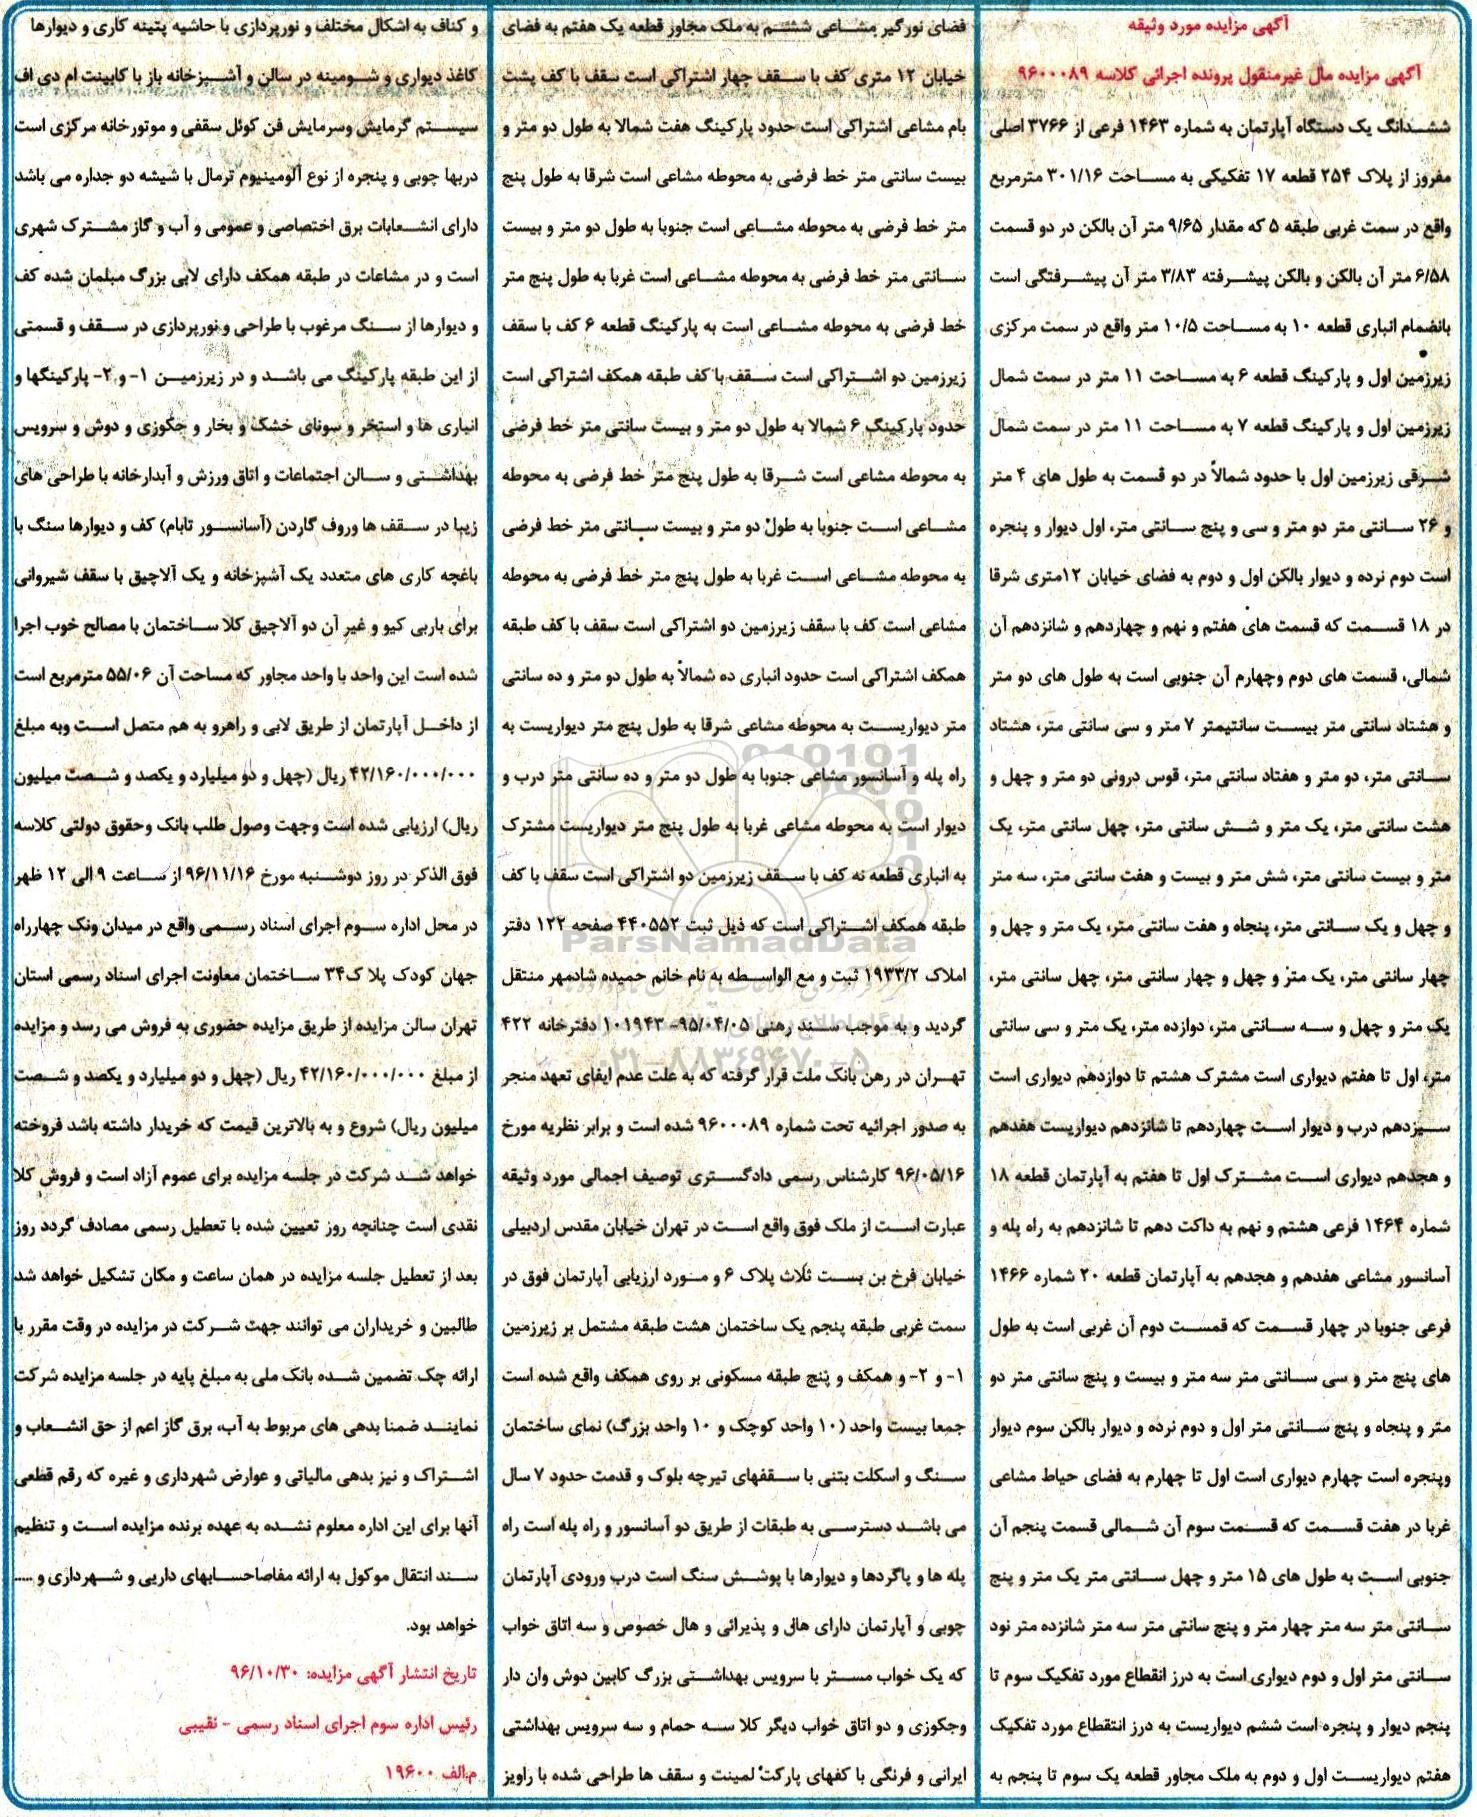 آگهی مزایده مورد وثیقه
آگهی مزایده مال غیرمنقول پرونده اجرائی کلاسه ۹۶۰۰۰۸۹
ششدانگ یک دستگاه آپارتمان به شماره ۱۴۶۳ فرعی از ۳۷۶۶ اصلی
مفروز از پلاک ۲۵۴ قطعه ۱۷ تفکیکی به مساحت ۳۰۱/۱۶ مترمربع
واقع در سمت غربی طبقه ۵ که مقدار ۹/۶۵ متر آن بالکن در دو قسمت
۶/۵۸ متر آن بالکن و بالکن پیشرفته ۳/۸۳ متر آن پیشرفتگی است
بانضمام انباری قطعه ۱۰ به مساحت ۱۰/۵ متر واقع در سمت مرکزی
زیرزمین اول و پارکینگ قطعه ۶ به مساحت ۱۱ متر در سمت شمال
زیرزمین اول و پارکینگ قطعه ۷ به مساحت ۱۱ متر در سمت شمال
شرقی زیرزمین اول با حدود شمالاً در دو قسمت به طول های ۴ متر
و ۲۶ سانتی متر دو متر و سی و پنج سانتی متر، اول دیوار و پنجره
است دوم نرده و دیوار بالکن اول و دوم به فضای خیابان ۱۲متری شرقا
در ۱۸ قسمت که قسمت های هفتم و نهم و چهاردهم و شانزدهم آن
شمالی، قسمت های دوم وچهارم آن جنوبی است به طول های دو متر
و هشتاد سانتی متر بیست سانتیمتر ۷ متر و سی سانتی متر، هشتاد
سانتی متر، دو متر و هفتاد سانتی متر، قوس درونی دو متر و چهل و
هشت سانتی متر، یک متر و شش سانتی متر، چهل سانتی متر، یک
متر و بیست سانتی متر، شش متر و بیست و هفت سانتی متر، سه متر
و چهل و یک سانتی متر، پنجاه و هفت سانتی متر، یک متر و چهل و
چهار سانتی متر، یک متر و چهل و چهار سانتی متر، چهل سانتی متر،
یک متر و چهل و سه سانتی متر، دوازده متر، یک متر و سی سانتی
متر، اول تا هفتم دیواری است مشترک هشتم تا دوازدهم دیواری است
سیزدهم درب و دیوار است چهاردهم تا شانزدهم دیواریست هفدهم
و هجدهم دیواری است مشترک اول تا هفتم به آپارتمان قطعه ۱۸
شماره ۱۴۶۴ فرعی هشتم و نهم به داکت دهم تا شانزدهم به راه پله و
آسانسور مشاعی هفدهم و هجدهم به آپارتمان قطعه ۲۰ شماره ۱۴۶۶
فرعی جنوبا در چهار قسمت که قمست دوم آن غربی است به طول
های پنج متر و سی سانتی متر سه متر و بیست و پنج سانتی متر دو
متر و پنجاه و پنج سانتی متر اول و دوم نرده و دیوار بالکن سوم دیوار
وپنجره است چهارم دیواری است اول تا چهارم به فضای حیاط مشاعی
غربا در هفت قسمت که قسمت سوم آن شمالی قسمت پنجم آن
جنوبی است به طول های ۱۵ متر و چهل سانتی متر یک متر و پنج
سانتی متر سه متر چهار متر و پنج سانتی متر سه متر شانزده متر نود
سانتی متر اول و دوم دیواری است به درز انقطاع مورد تفکیک سوم تا
پنجم دیوار و پنجره است ششم دیواریست به درز انتقطاع مورد تفکیک
هفتم دیواریست اول و دوم به ملک مجاور قطعه یک سوم تا پنجم به
فضای نورگیر مشاعی ششم به ملک مجاور قطعه یک هفتم به فضای
خیابان ۱۲ متری کف با سقف چهار اشتراکی است سقف با کف پشت
بام مشاعی اشتراکی است حدود پارکینگ هفت شمالا به طول دو متر و
بیست سانتی متر خط فرضی به محوطه مشاعی است شرقا به طول پنج
متر خط فرضی به محوطه مشاعی است جنوبا به طول دو متر و بیست
سانتی متر خط فرضی به محوطه مشاعی است غربا به طول پنج متر
خط فرضی به محوطه مشاعی است به پارکینگ قطعه ۶ کف با سقف
زیرزمین دو اشتراکی است سقف با کف طبقه همکف اشتراکی است
حدود پارکینگ ۶ شمالا به طول دو متر و بیست سانتی متر خط فرضی
به محوطه مشاعی است شرقا به طول پنج متر خط فرضی به محوطه
مشاعی است جنوبا به طول دو متر و بیست سانتی متر خط فرضی
به محوطه مشاعی است غربا به طول پنج متر خط فرضی به محوطه
مشاعی است کف با سقف زیرزمین دو اشتراکی است سقف با کف طبقه
همکف اشتراکی است حدود انباری ده شمالاً به طول دو متر و ده سانتی
متر دیواریست به محوطه مشاعی شرقا به طول پنج متر دیواریست به
راه پله و آسانسور مشاعی جنوبا به طول دو متر و ده سانتی متر درب و
دیوار است به محوطه مشاعی غربا به طول پنج متر دیواریست مشترک
به انباری قطعه نه کف با سقف زیرزمین دو اشتراکی است سقف با کف
طبقه همکف اشتراکی است که ذیل ثبت ۴۴۰۵۵۲ صفحه ۱۲۲ دفتر
املاک ۱۹۳۳/۲ ثبت و مع الواسطه به نام خانم حمیده شادمهر منتقل
گردید و به موجب سند رهنی ۹۵/۰۴/۰۵- ۱۰۱۹۴۳ دفترخانه ۴۲۲
تهران در رهن بانک ملت قرار گرفته که به علت عدم ایفای تعهد منجر
به صدور اجرائیه تحت شماره ۹۶۰۰۰۸۹ شده است و برابر نظریه مورخ
۹۶/۰۵/۱۶ کارشناس رسمی دادگستری توصیف اجمالی مورد وثیقه
عبارت است از ملک فوق واقع است در تهران خیابان مقدس اردبیلی
خیابان فرخ بن بست ثلاث پلاک ۶ و مورد ارزیابی آپارتمان فوق در
سمت غربی طبقه پنجم یک ساختمان هشت طبقه مشتمل بر زیرزمین
۱- و ۲- و همکف و پنج طبقه مسکونی بر روی همکف واقع شده است
جمعا بیست واحد (۱۰ واحد کوچک و ۱۰ واحد بزرگ) نمای ساختمان
سنگ و اسکلت بتنی با سقفهای تیرچه بلوک و قدمت حدود ۷ سال
می باشد دسترسی به طبقات از طریق دو آسانسور و راه پله است راه
پله ها و پاگردها و دیوارها با پوشش سنگ است درب ورودی آپارتمان
چوبی و آپارتمان دارای هال و پذیرائی و هال خصوص و سه اتاق خواب
که یک خواب مستر با سرویس بهداشتی بزرگ کابین دوش وان دار
وجکوزی و دو اتاق خواب دیگر کلا سه حمام و سه سرویس بهداشتی
ایرانی و فرنگی با کفهای پارکت لمینت و سقف ها طراحی شده با راویز
و کناف به اشکال مختلف و نورپردازی با حاشیه پتینه کاری و دیوارها
کاغذ دیواری و شومینه در سالن و آشپزخانه باز با کابینت ام دی اف
سیستم گرمایش وسرمایش فن کوئل سقفی و موتورخانه مرکزی است
دربها چوبی و پنجره از نوع آلومینیوم ترمال با شیشه دو جداره می باشد
دارای انشعابات برق اختصاصی و عمومی و آب و گاز مشترک شهری
است و در مشاعات در طبقه همکف دارای لابی بزرگ مبلمان شده کف
و دیوارها از سنگ مرغوب با طراحی و نورپردازی در سقف و قسمتی
از این طبقه پارکینگ می باشد و در زیرزمین ۱- و ۲- پارکینگها و
انباری ها و استخر و سونای خشک و بخار و جکوزی و دوش و سرویس
بهداشتی و سالن اجتماعات و اتاق ورزش و آبدارخانه با طراحی های
زیبا در سقف ها وروف گاردن (آسانسور تابام) کف و دیوارها سنگ با
باغچه کاری های متعدد یک آشپزخانه و یک آلاچیق با سقف شیروانی
برای باربی کیو و غیر آن دو آلاچیق کلا ساختمان با مصالح خوب اجرا
شده است این واحد با واحد مجاور که مساحت آن ۵۵/۰۶ مترمربع است
از داخل آپارتمان از طریق لابی و راهرو به هم متصل است وبه مبلغ
۴۲/۱۶۰/۰۰۰/۰۰۰ ریال (چهل و دو میلیارد و یکصد و شصت میلیون
ریال) ارزیابی شده است وجهت وصول طلب بانک وحقوق دولتی کلاسه
فوق الذکر در روز دوشنبه مورخ ۹۶/۱۱/۱۶ از ساعت ۹ الی ۱۲ ظهر
در محل اداره سوم اجرای اسناد رسمی واقع در میدان ونک چهارراه
جهان کودک پلا ک۳۴ ساختمان معاونت اجرای اسناد رسمی استان
تهران سالن مزایده از طریق مزایده حضوری به فروش می رسد و مزایده
از مبلغ ۴۲/۱۶۰/۰۰۰/۰۰۰ ریال (چهل و دو میلیارد و یکصد و شصت
میلیون ریال) شروع و به بالاترین قیمت که خریدار داشته باشد فروخته
خواهد شد شرکت در جلسه مزایده برای عموم آزاد است و فروش کلا
نقدی است چنانچه روز تعیین شده با تعطیل رسمی مصادف گردد روز
بعد از تعطیل جلسه مزایده در همان ساعت و مکان تشکیل خواهد شد
طالبین و خریداران می توانند جهت شرکت در مزایده در وقت مقرر با
ارائه چک تضمین شده بانک ملی به مبلغ پایه در جلسه مزایده شرکت
نمایند ضمنا بدهی های مربوط به آب، برق گاز اعم از حق انشعاب و
اشتراک و نیز بدهی مالیاتی و عوارض شهرداری و غیره که رقم قطعی
آنها برای این اداره معلوم نشده به عهده برنده مزایده است و تنظیم
سند انتقال موکول به ارائه مفاصاحسابهای دارایی و شهرداری و .....
خواهد بود.
تاریخ انتشار آگهی مزایده: ۹۶/۱۰/۳۰
رئیس اداره سوم اجرای اسناد رسمی - نقیبی
م.الف ۱۹۶۰۰
ParsNamadData
۰۲۱-۸۸۳۴۹۶۷۰-۵